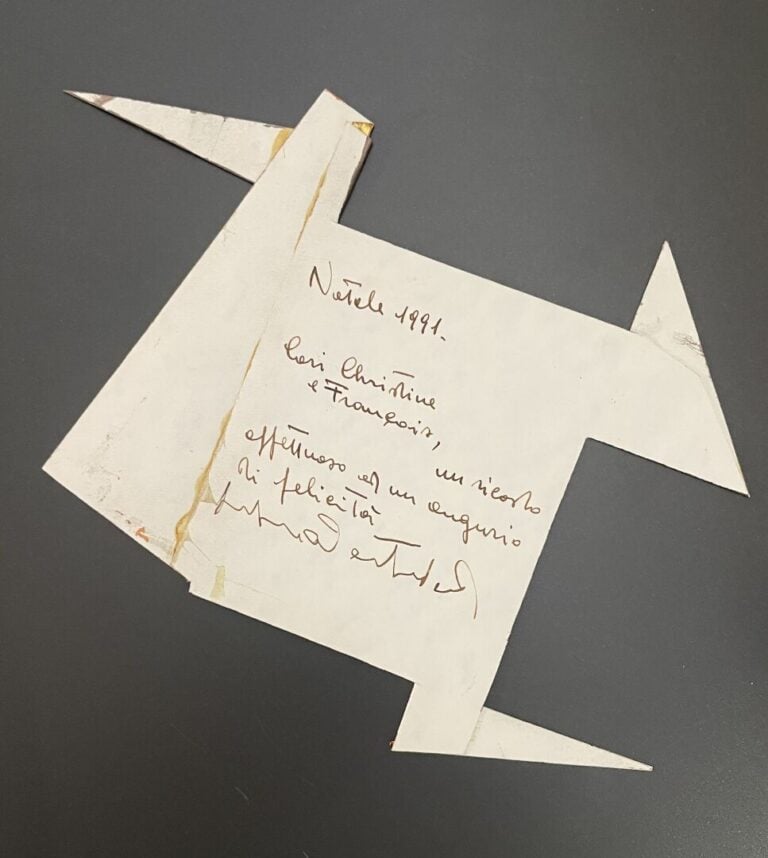 Natale 1991.
Cari Christine
e François,
un ricordo
affettuoso ed un augurio
di felicità